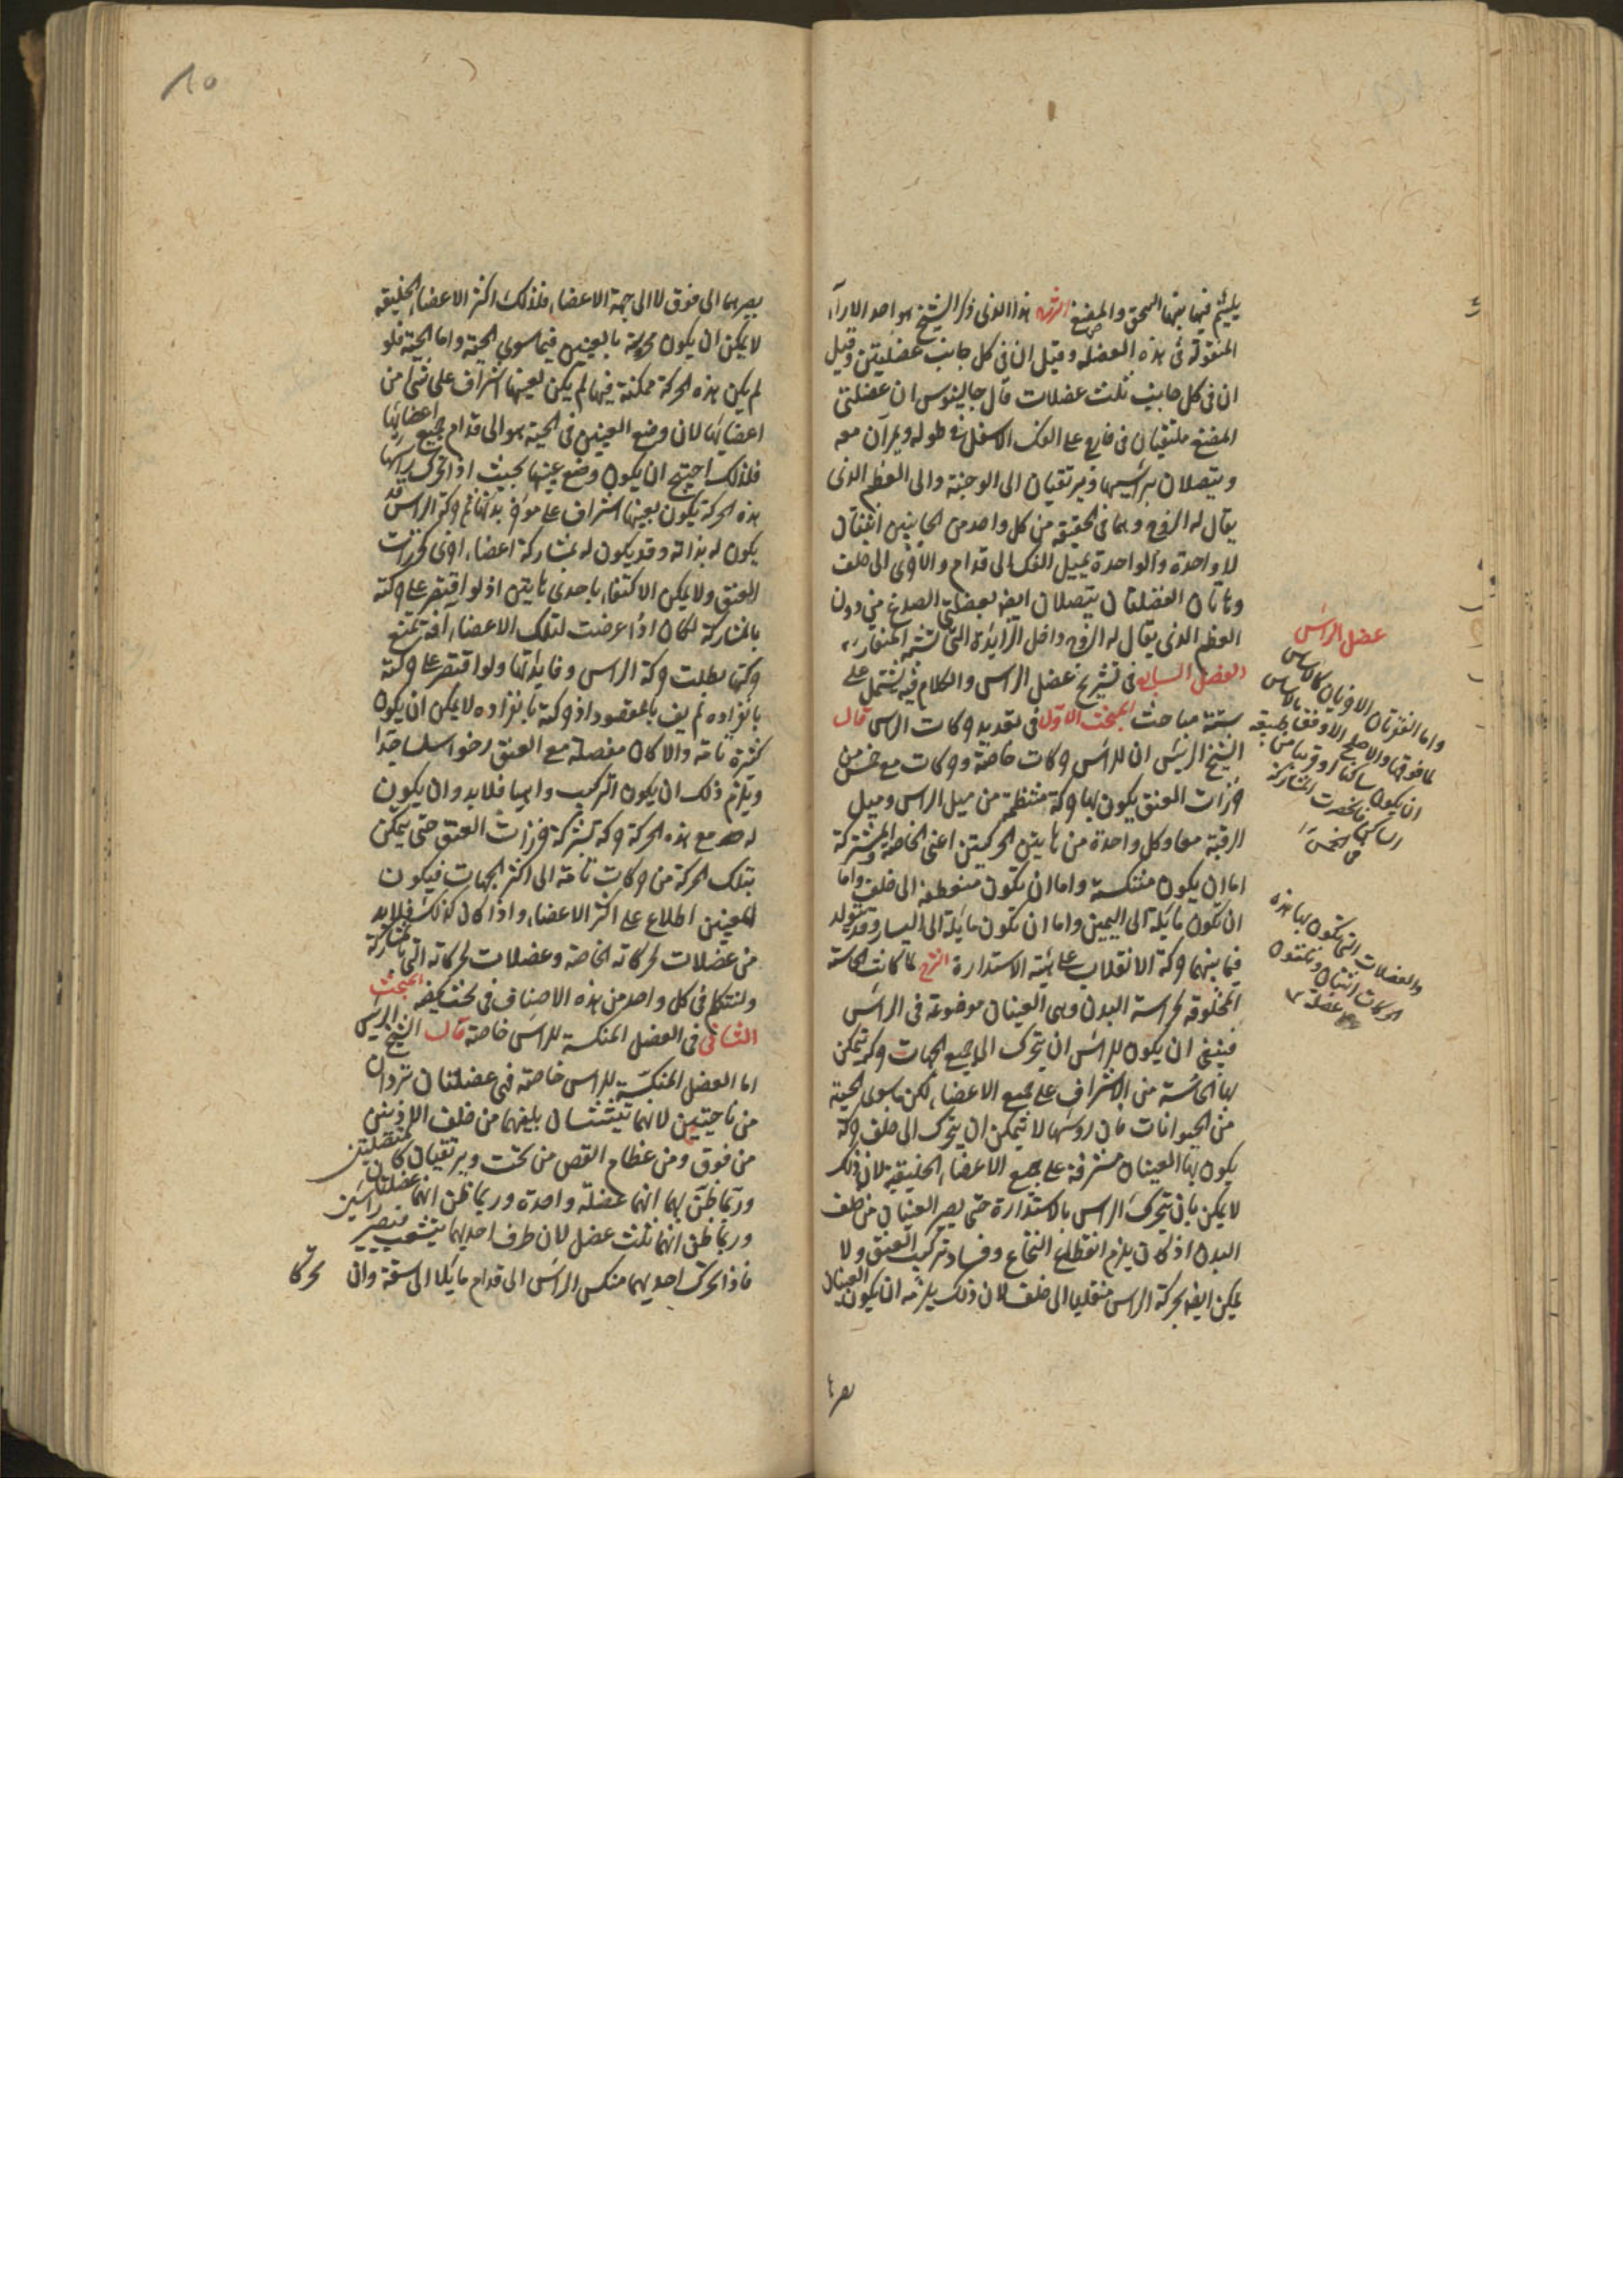 يلتئم فيما بينها السحق والمضغ الشرح هذا الذى ذكره الشيخ هو احد الاراء
المنقولة فى هذه العضلة وقيل ان فى كل جانب عضلتين وقيل
ان فى كل جانب ثلث عضلات قال جالينوس ان عضلتى
المضغ ملتقيان فى خارج على الفك الاسفل فى طوله ويمران معه
ويتصلان براسيهما ويرتقيان الى الوجنة والى العظم الذى
يقال له الزوج وهما فى الحقيقة من كل واحد من الجانبين اثنتان
لا واحدة والواحدة تميل الفك الى قدام والاخرى الى خلف
وهاتان العضلتان يتصلان ايضا بعضلتى الصدغ من دون
العظم الذى يقال له الزوج داخل الزايدة التى تشبه المنقار
الفصل السابع فى تشريح عضل الراس والكلام فيه يشتمل على
ستة مباحث المبحث الاول فى تعديد حركات الراس قال
الشيخ الرئيس ان للراس حركات خاصة وحركات مع خمس من
خرزات العنق يكون بها حركة منتظمة من ميل الراس وميل
الرقبة معا وكل واحدة من هاتين الحركتين اعنى الخاصة والمشتركة
اما ان يكون متنكسة واما ان تكون منعطفة الى خلف واما
ان تكون مايلة الى اليمين واما ان تكون مايلة الى اليسار وقد يتولد
فيما بينهما حركة الانقلاب على هيئة الاستدارة الشرح لما كانت الحاسة
المخلوقة لحراسة البدن وهى العينان موضوعة فى الراس
فينبغى ان يكون للراس ان يتحرك الى جميع الجهات حركة تمكن
بها الحاسة من الاشراف على جميع الاعضاء لكن ما سوى الحية
من الحيوانات فان روسها لا يمكن ان يتحرك الى خلف حركة
يكون بها العينان مشرفة على جميع الاعضاء الخلفية لان ذلك
لا يمكن بان يتحرك الراس بالاستدارة حتى يصير العينان من خلف
البدن اذ كان يلزم انقطاع النخاع وفساد تركيب العنق ولا
يمكن ايضا بحركة الراس منقلبا الى خلف لان ذلك يلزمه ان يكون العينان
بصر
عضل الراس
واما الفقرتان الاوليان كالاساس
لما فوقها والاصلح الاوفق بالاساس
ان يكون ساكنا او قريبا من
الساكن فانحصرت المشاركة
فى الخمس
والعضلات التى تكون بها هذه
الحركات اثنتان وثلثون
عضلة
١٥
بصرهما الى فوق لا الى جهة الاعضاء فلذلك اكثر الاعضاء الخلفية
لا يمكن ان يكون محروسة بالعينين فيما سوى الحية واما الحية فلو
لم يكن هذه الحركة ممكنة فيها لم يكن لعينها اشراف على شئ من
اعضايها لان وضع العينين فى الحية هو الى قدام جميع اعضايها
فلذلك احتيج ان يكون وضع عينها بحيث اذا تحرك راسها
هذه الحركة يكون لعينها اشراف على موخر بدنها ثم حركة الراس قد
يكون له بذاته وقد يكون له بمشاركة اعضاء اخرى كخرزات
العنق ولا يمكن الاكتفاء باحدى هاتين اذ لو اقتصر على حركته
بالمشاركة لكان اذا عرضت لتلك الاعضاء افة تمنع
حركتها بطلت حركة الراس وفايدتها ولو اقتصر على حركته
بانفراده لم يف بالمقصود اذ حركته بانفراده لا يمكن ان يكون
كثيرة تامة والا كان مفصله مع العنق رخوا سلسا جدا
ويلزم ذلك ان يكون التركيب واهيا فلابد وان يكون
له مع هذه الحركة حركة بشركة خرزات العنق حتى يتمكن
بتلك الحركة من حركات تامة الى اكثر الجهات فيكون
للعينين اطلاع على اكثر الاعضاء واذا كان كذلك فلابد
من عضلات لحركاته الخاصة وعضلات لحركاته التى بالمشاركة
ولنتكلم فى كل واحد من هذه الاصناف فى بحث يخصه المبحث
الثانى فى العضل المنكسة للراس خاصة قال الشيخ الرئيس
اما العضل المنكسة للراس خاصة فهى عضلتان تردان
من ناحيتين لانهما تتشبثان بليفهما من خلف الاذنين
من فوق ومن عظام القص من تحت ويرتقيان كالمتصلتين
وربما ظن بهما انهما عضلة واحدة وربما ظن انهما عضلتان
وربما ظن انهما ثلث عضل لان طرف احديهما يتشعب فيصير راسين
فاذا تحرك احديهما منكس الراس الى قدام مايلا الى شقة وان تحركا